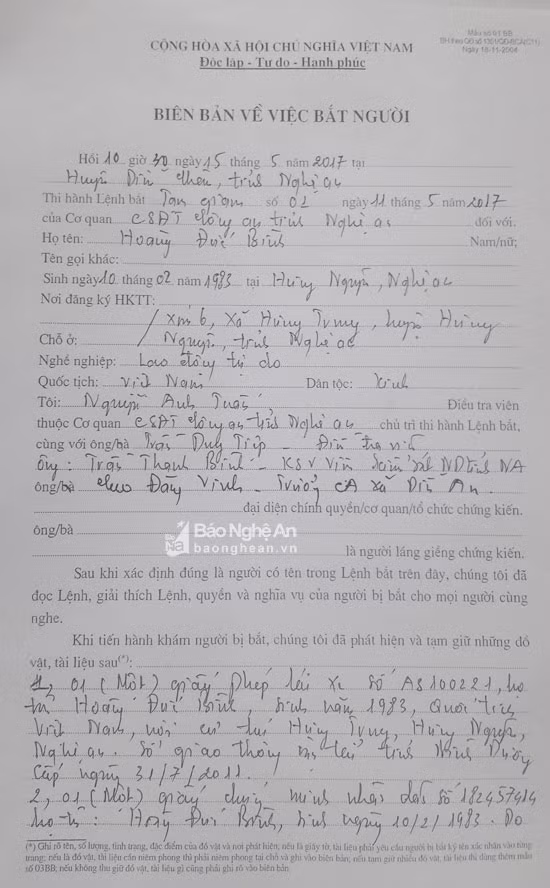 Mẫu số 01 BB
BH theo QĐ số 1301/QĐ-BCA(C11)
Ngày 18-11-2004
CỘNG HÒA XÃ HỘI CHỦ NGHĨA VIỆT NAM
Độc lập - Tự do - Hạnh phúc
BIÊN BẢN VỀ VIỆC BẮT NGƯỜI
Hồi 10 giờ 30 ngày 15 tháng 5 năm 2017 tại
Huyện Diễn Châu, tỉnh Nghệ An
Thi hành Lệnh bắt Tạm giam số 02 ngày 11 tháng 5 năm 2017
của Cơ quan CSĐT Công an tỉnh Nghệ An đối với:
Họ tên: Hoàng Đức Bình Nam/nữ:
Tên gọi khác:
Sinh ngày 10 tháng 02 năm 1983 tại Hưng Nguyên, Nghệ An
Nơi đăng ký HKTT:
Xóm 6, Xã Hưng Trung, huyện Hưng
Chỗ ở: Nguyên, tỉnh Nghệ An
Nghề nghiệp: Lao động tự do
Quốc tịch: Việt Nam Dân tộc: Kinh
Tôi: Nguyễn Anh Tuấn Điều tra viên
thuộc Cơ quan CSĐT Công an tỉnh Nghệ An chủ trì thi hành Lệnh bắt,
cùng với ông/bà Trần Duy Tiệp - Điều tra viên
Ông: Trần Thanh Bình - KSV Viện kiểm sát ND tỉnh NA
ông/bà Cao Đăng Vinh - Trưởng CA xã Diễn An.
đại diện chính quyền/cơ quan/tổ chức chứng kiến.
Na Báo Nghệ An
baonghean.vn
ông/bà
là người láng giềng chứng kiến.
Sau khi xác định đúng là người có tên trong Lệnh bắt trên đây, chúng tôi đã
đọc Lệnh, giải thích Lệnh, quyền và nghĩa vụ của người bị bắt cho mọi người cùng
nghe.
Khi tiến hành khám người bị bắt, chúng tôi đã phát hiện và tạm giữ những đồ
vật, tài liệu sau(*):
1, 01 (Một) giấy phép lái xe số AS100221, họ
tên Hoàng Đức Bình, sinh năm 1983, Quốc tịch
Việt Nam, nơi cư trú Hưng Trung, Hưng Nguyên,
Nghệ An. Sở giao thông vận tải tỉnh Bình Dương
Cấp ngày 31/7/2011.
2, 01 (Một) giấy chứng minh nhân dân số 182457914
họ tên: Hoàng Đức Bình, sinh ngày 10/2/1983. Do
(*) Ghi rõ tên, số lượng, tình trạng, đặc điểm của đồ vật và nơi phát hiện; nếu là giấy tờ, tài liệu phải yêu cầu người bị bắt ký tên xác nhận vào từng
trang; nếu là đồ vật, tài liệu cần niêm phong thì phải niêm phong tại chỗ và ghi vào biên bản; nếu tạm giữ nhiều đồ vật, tài liệu thì dùng thêm mẫu
số 03BB; nếu không thu giữ đồ vật, tài liệu gì cũng phải ghi rõ vào biên bản.